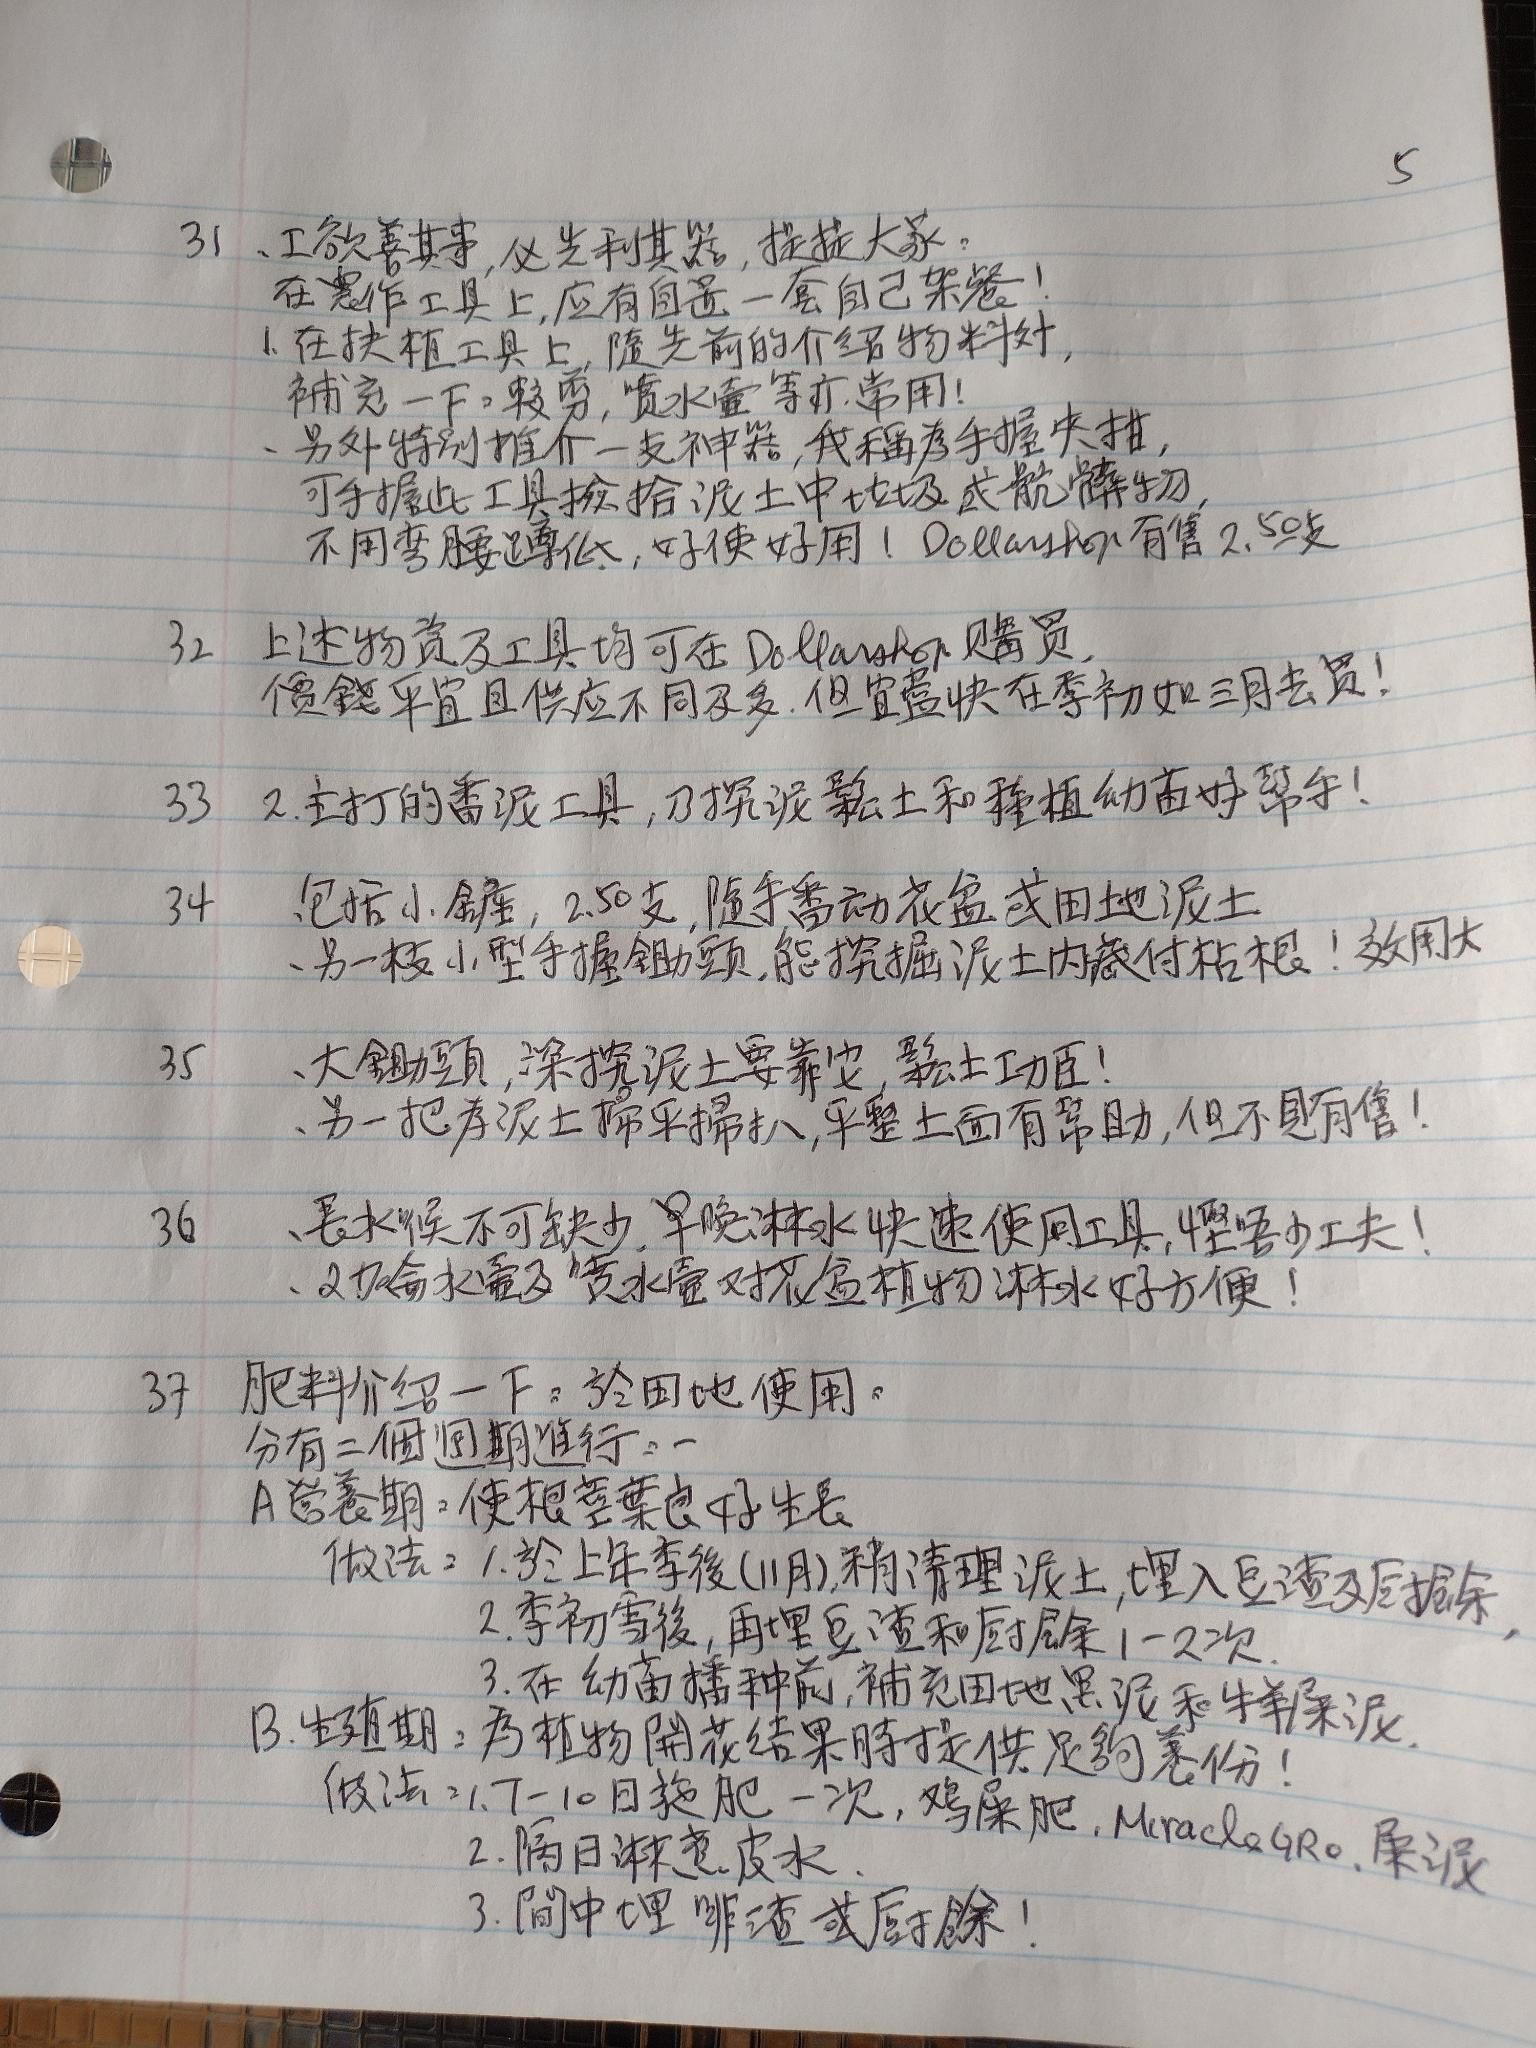 5
31、工欲善其事,必先利其器,提提大家:
在農作工具上,应有自置一套自己架餐!
1.在扶植工具上,隨先前的介紹物料外,
補充一下:較剪,噴水壺等亦常用!
、另外特别推介一支神器,我稱為手握夾拑,
可手握此工具撿拾泥土中垃圾或骯髒物,
不用弯腰蹲低,好使好用!Dollarshop有售2.50支
32 上述物資及工具均可在Dollarshop購買,
價錢平宜且供应不同及多.但宜盡快在季初如三月去買!
33 2.主打的番泥工具,乃挖泥鬆土和種植幼苗好幫手!
34 包括小鏟,2.50支,隨手番动花盆或田地泥土
、另一枝小型手握鋤頭,能挖掘泥土内藏付枯根!效用大
35 、大鋤頭,深挖泥土要靠它,鬆土功臣!
、另一把為泥土掃平掃扒,平整土面有幫助,但不見有售!
36 、長水喉不可缺少.早晚淋水快速使用工具,慳唔少工夫!
、2加侖水壺及噴水壺对花盆植物淋水好方便!
37 肥料介紹一下:於田地使用:
分有二個週期進行:一
A營養期:使根莖葉良好生長
做法:1.於上年季後(11月),稍清理泥土,埋入豆渣及厨餘,
2.季初雪後,再埋豆渣和厨餘1-2次.
3.在幼苗播种前,補充田地黑泥和牛羊屎泥.
B.生殖期:為植物開花结果時提供足夠養份!
做法:1.7-10日施肥一次,鸡屎肥.MiracleGRo.屎泥
2.隔日淋蕉皮水.
3.間中埋啡渣或厨餘!